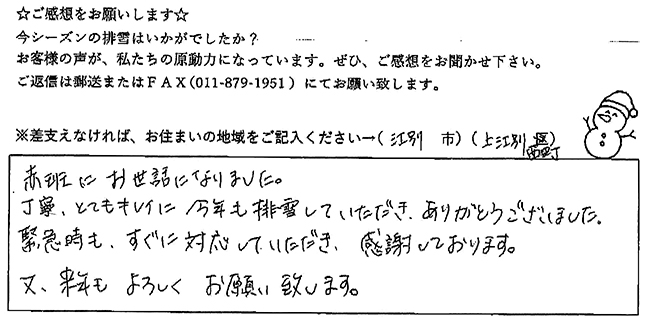 ☆ご感想をお願いします☆
今シーズンの排雪はいかがでしたか？
お客様の声が、私たちの原動力になっています。ぜひ、ご感想をお聞かせ下さい。
ご返信は郵送またはＦＡＸ(011-879-1951）にてお願い致します。
※差支えなければ、お住まいの地域をご記入ください→( 江別 市) ( 上江別 区)
西町
赤班に お世話になりました。
丁寧、とてもキレイに 今年も排雪していただき、ありがとうございました。
緊急時も、すぐに対応していただき、感謝しております。
又、来年も よろしく お願い致します。